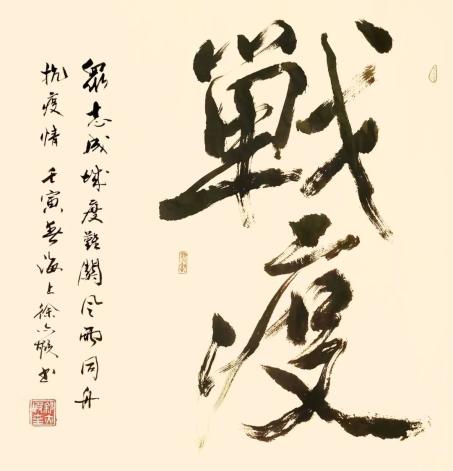 戰疫
眾志成城度難關風雨同舟
抗疫情 壬寅春海上徐六書